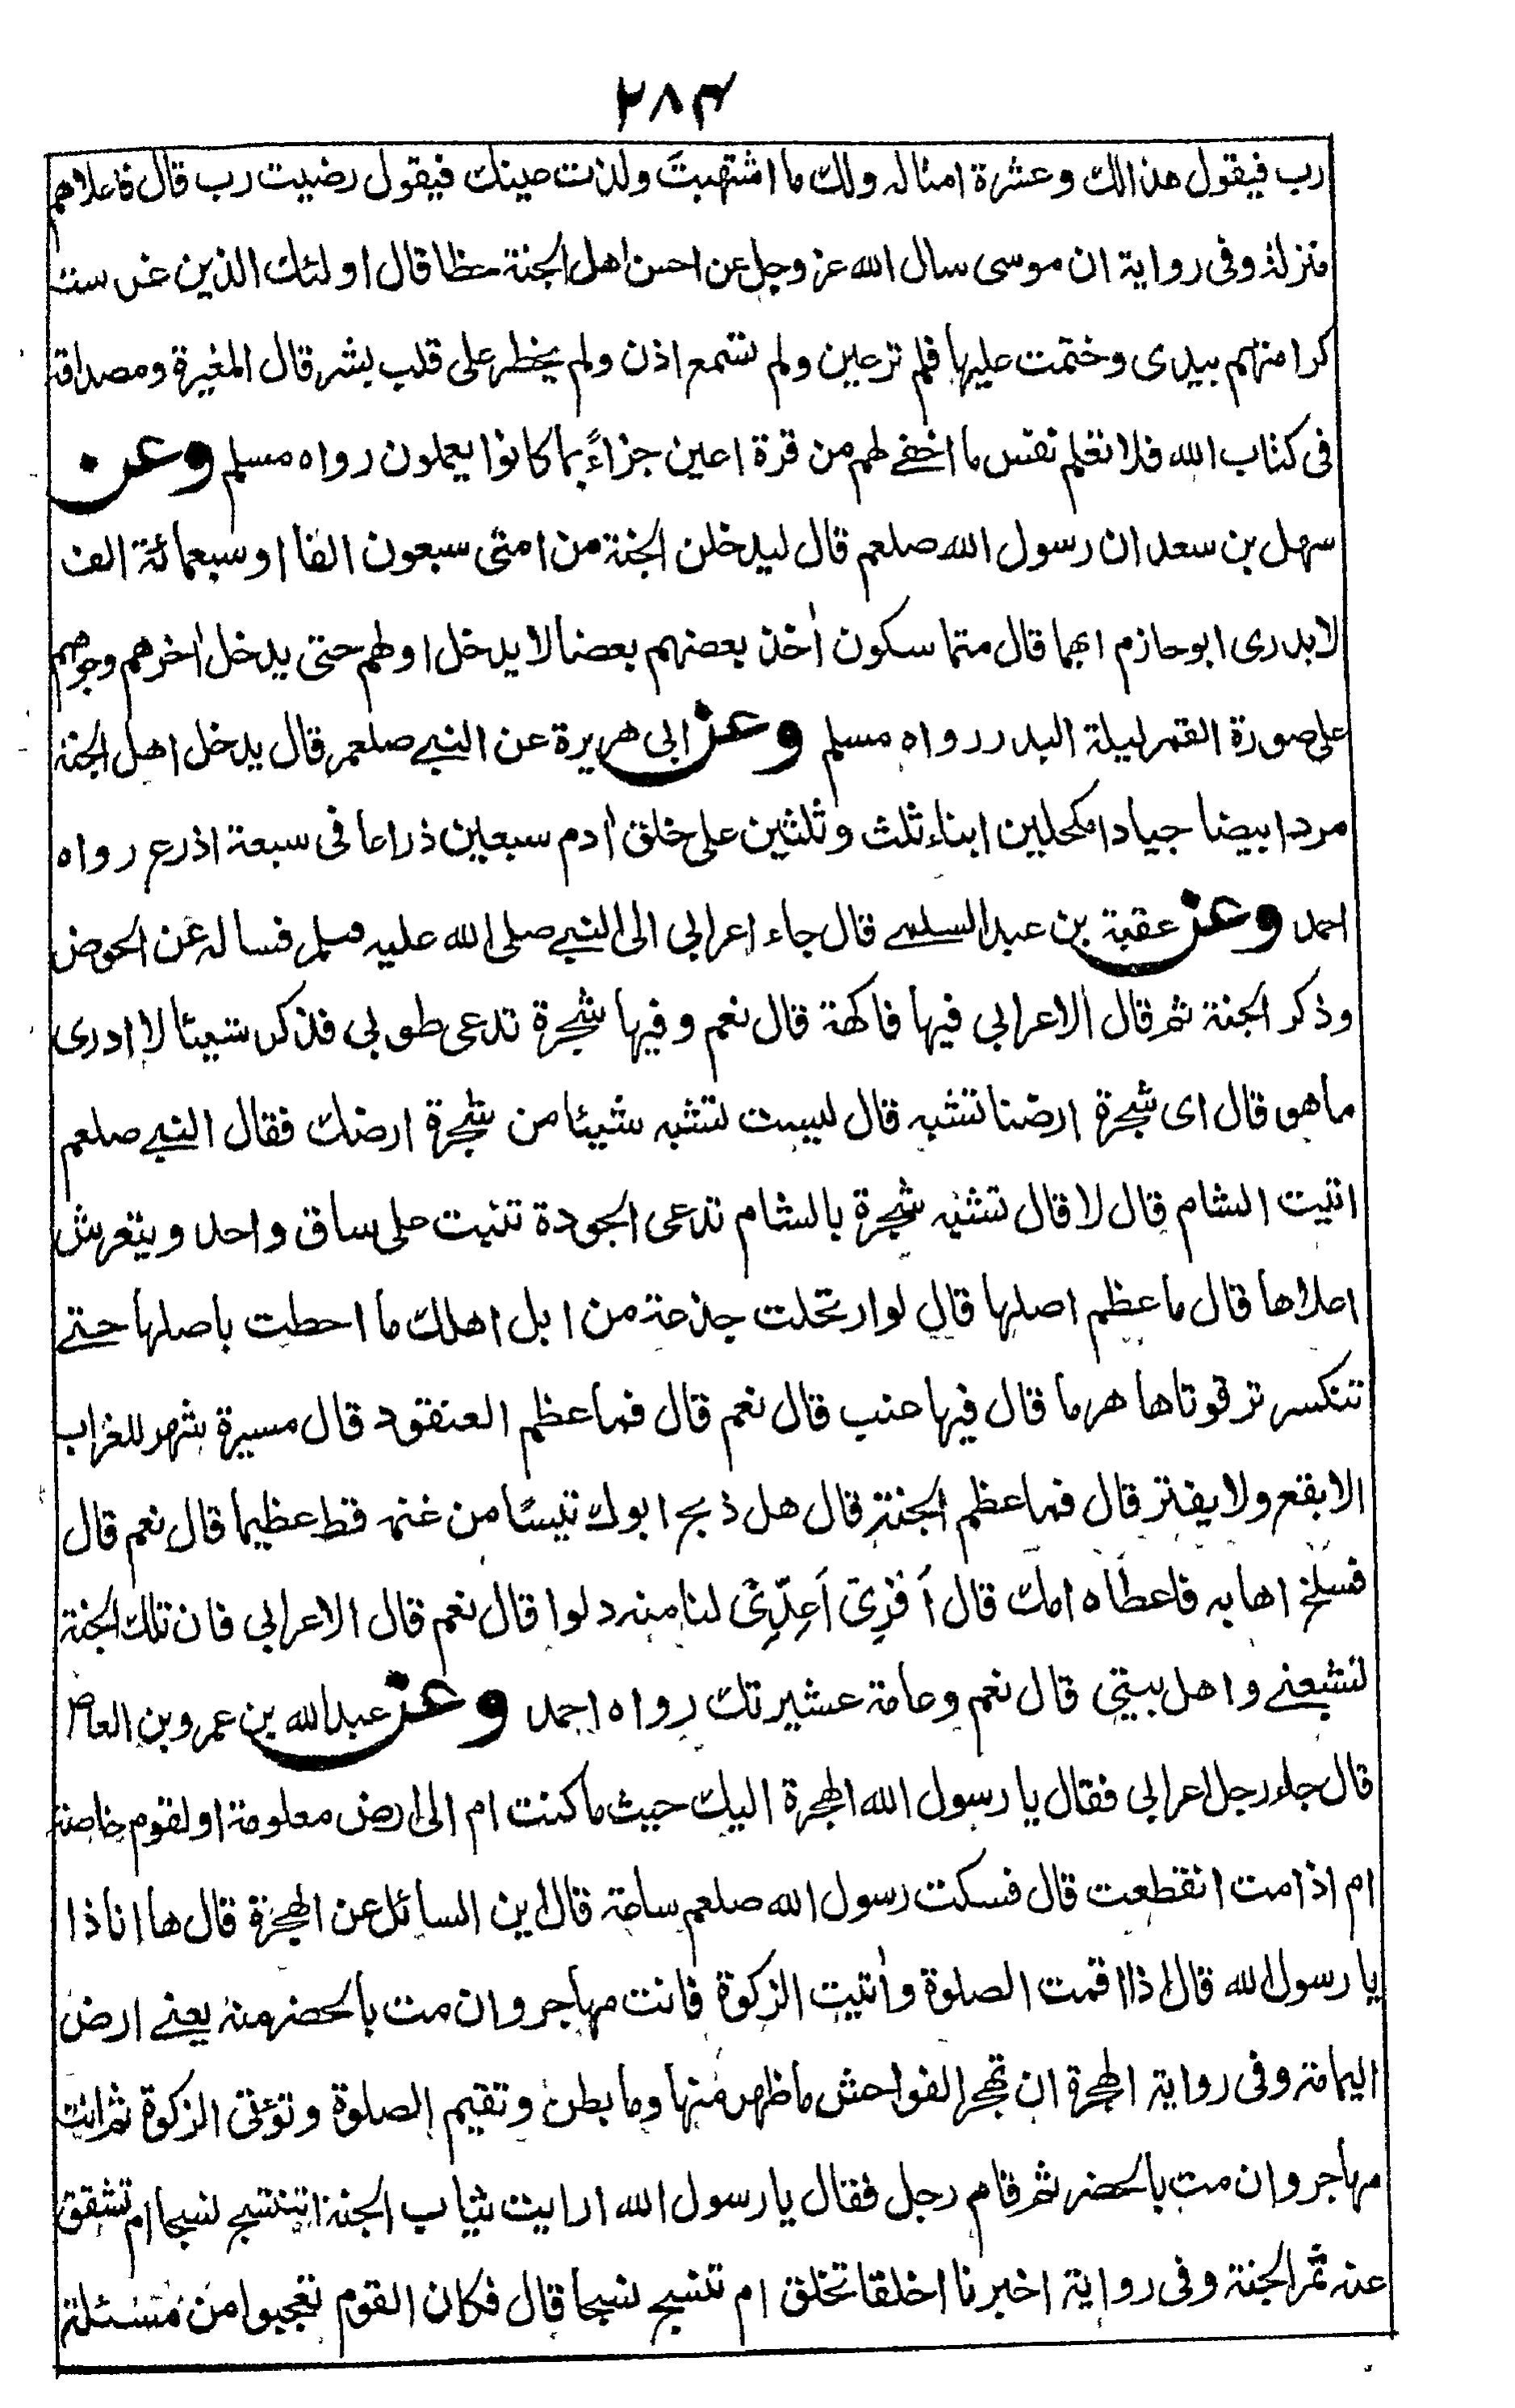 ٢٨٤
رب فيقول هذا لك وعشرة امثاله ولك ما اشتهيت ولذت عينك فيقول رضيت رب قال فاعلاهم
منزلة وفى رواية ان موسى سال الله عز وجل عن احسن اهل الجنة حظا قال اولئك الذين غرست
كرامتهم بيدى وختمت عليها فلم تر عين ولم تسمع اذن ولم يخطر على قلب بشر قال المغيرة ومصداقه
فى كتاب الله فلا تعلم نفس ما اخفے لهم من قرة اعين جزاءً بما كانوا يعملون رواه مسلم وعن
سهل بن سعد ان رسول الله صلعم قال ليدخلن الجنة من امتى سبعون الفا او سبعمائة الف
لا يدرى ابو حازم ايهما قال متماسكون اٰخذ بعضهم بعضا لا يدخل اولهم حتى يدخل اٰخرهم وجوههم
على صورة القمر ليلة البدر رواه مسلم وعن ابى هريرة عن النبے صلعم قال يدخل اهل الجنة
مردا بيضا جيادا مكحلين ابناء ثلث وثلثين على خلق اٰدم سبعين ذراعا فى سبعة اذرع رواه
احمد وعن عقبة بن عبد السلمے قال جاء اعرابى الى النبے صلى الله عليه وسلم فساله عن الحوض
وذكر الجنة ثم قال الاعرابى فيها فاكهة قال نعم وفيها شجرة تدعى طوبى فذكر شيئا لا ادرى
ما هو قال اى شجرة ارضنا تشبه قال ليست تشبه شيئا من شجرة ارضك فقال النبے صلعم
اتيت الشام قال لا قال تشبه شجرة بالشام تدعى الجودة تنبت على ساق واحد ويتعرش
اعلاها قال ما عظم اصلها قال لو ارتحلت جذعة من ابل اهلك ما احطت باصلها حتے
تنكسر ترقوتاها هرما قال فيها عنب قال نعم قال فما عظم العنقود قال مسيرة شهر للغراب
الابقع ولا يفتر قال فما عظم الجنة قال هل ذبح ابوك تيسًا من غنمه قط عظيما قال نعم قال
فسلخ اهابه فاعطاه امك قال اَفْرِىْ اَعِدِّىْ لنا منه دلوا قال نعم قال الاعرابى فان تلك الجنة
لتشبعنے واهل بيتى قال نعم وعامة عشيرتك رواه احمد وعن عبد الله بن عمرو بن العاص
قال جاء رجل اعرابى فقال يا رسول الله الهجرة اليك حيث ما كنت ام الى ارض معلومة او لقوم خاصة
ام اذا مت انقطعت قال فسكت رسول الله صلعم ساعة قال اين السائل عن الهجرة قال ها انا ذا
يا رسول الله قال اذا اقمت الصلوة واٰتيت الزكوة فانت مهاجر وان مت بالحضرمة يعنے ارض
اليمامة وفى رواية الهجرة ان تهجر الفواحش ما ظهر منها وما بطن وتقيم الصلوة وتؤتى الزكوة ثم انت
مهاجر وان مت بالحضر ثم قام رجل فقال يا رسول الله ارايت ثياب الجنة اتنسج نسجا ام تشقق
عنه ثمر الجنة وفى رواية اخبرنا اخلقا تخلق ام تنسج نسجا قال فكان القوم تعجبوا من مسئلة